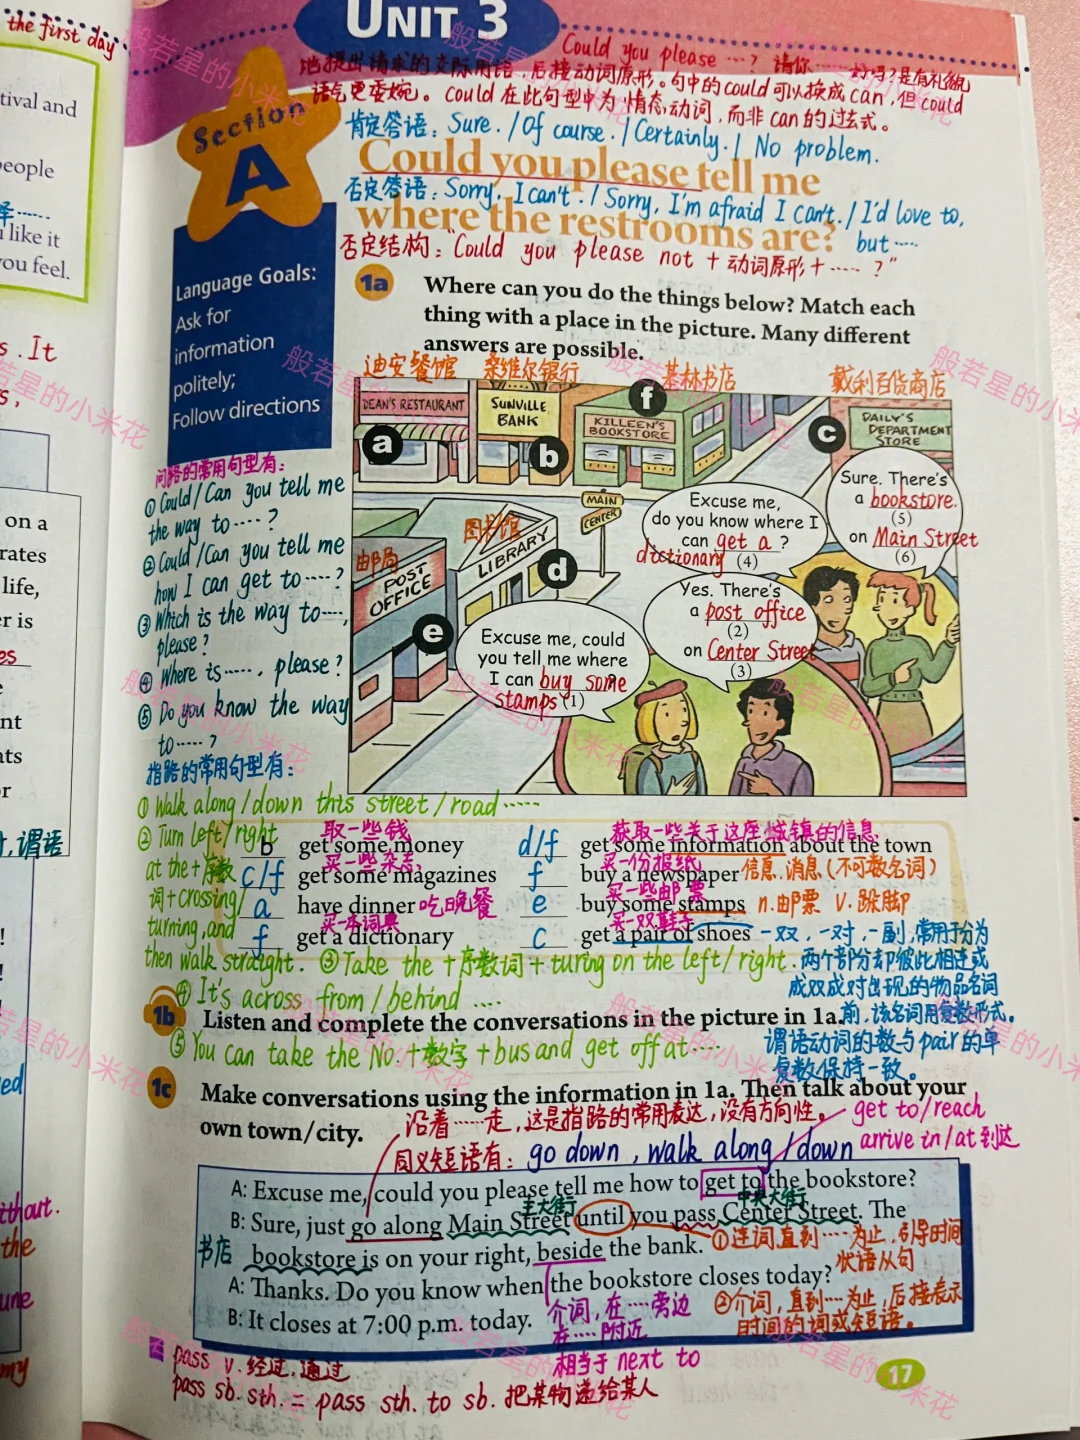 the first day
tival and
people
译……
u like it
you feel.
s. It
s,
on a
rates
life,
er is
es
e
nt
ats
or
,谓语
!
!
!
ed
ithout.
the
une
my
UNIT 3
Could you please …? 请你……好吗?是有礼貌
地提出请求的交际用语,后接动词原形。句中的could可以换成can,但could
语气更委婉。could在此句型中为情态动词,而非can的过去式。
肯定答语:Sure. / Of course. / Certainly. / No problem.
Section
A
Could you please tell me
否定答语:Sorry, I can't. / Sorry, I'm afraid I can't. / I'd love to,
where the restrooms are?
but……
否定结构:"Could you please not + 动词原形 + …… ?"
Language Goals:
Ask for
information
politely;
Follow directions
1a
Where can you do the things below? Match each
thing with a place in the picture. Many different
answers are possible.
迪安餐馆 桑维尔银行 基林书店 戴利百货商店
DEAN'S RESTAURANT
SUNVILLE
BANK
KILLEEN'S
BOOKSTORE
DAILY'S
DEPARTMENT
STORE
a
b
f
c
MAIN
CENTER
图书馆
LIBRARY
邮局
POST
OFFICE
d
e
Excuse me,
do you know where I
can get a ?
dictionary (4)
Sure. There's
a bookstore.
(5)
on Main Street
(6)
Yes. There's
a post office
(2)
on Center Street
(3)
Excuse me, could
you tell me where
I can buy some
stamps (1) ?
问路的常用句型有:
① Could/Can you tell me
the way to …… ?
② Could/Can you tell me
how I can get to …… ?
③ Which is the way to……,
please?
④ Where is……, please?
⑤ Do you know the way
to …… ?
指路的常用句型有:
① Walk along/down this street/road……
② Turn left/right
at the+序数
词+crossing/
turning, and
then walk straight. ③ Take the +序数词+turing on the left/right.
④ It's across from/behind ….
⑤ You can take the No.+数字+bus and get off at…
取一些钱
b get some money
买一些杂志
c/f get some magazines
a have dinner 吃晚餐
买一本词典
f get a dictionary
获取一些关于这座城镇的信息
d/f get some information about the town
买一份报纸
f buy a newspaper 信息,消息(不可数名词)
买一些邮票
e buy some stamps n.邮票 v.跺脚
买一双鞋子
c get a pair of shoes 一双,一对,一副,常用于分为
两个部分却彼此相连或
成双成对出现的物品名词
前,该名词用复数形式。
谓语动词的数与pair的单
复数保持一致。
1b
Listen and complete the conversations in the picture in 1a.
1c
Make conversations using the information in 1a. Then talk about your
own town/city.
沿着……走,这是指路的常用表达,没有方向性。
同义短语有:go down, walk along/down
get to/reach
arrive in/at 到达
A: Excuse me, could you please tell me how to get to the bookstore?
主大街 中央大街
B: Sure, just go along Main Street until you pass Center Street. The
书店 bookstore is on your right, beside the bank.
A: Thanks. Do you know when the bookstore closes today?
B: It closes at 7:00 p.m. today.
①连词,直到……为止,引导时间
状语从句
②介词,直到……为止,后接表示
时间的词或短语。
介词,在……旁边
在……附近
相当于 next to
pass v. 经过,通过
pass sb. sth. = pass sth. to sb. 把某物递给某人
17
般若星的小米花